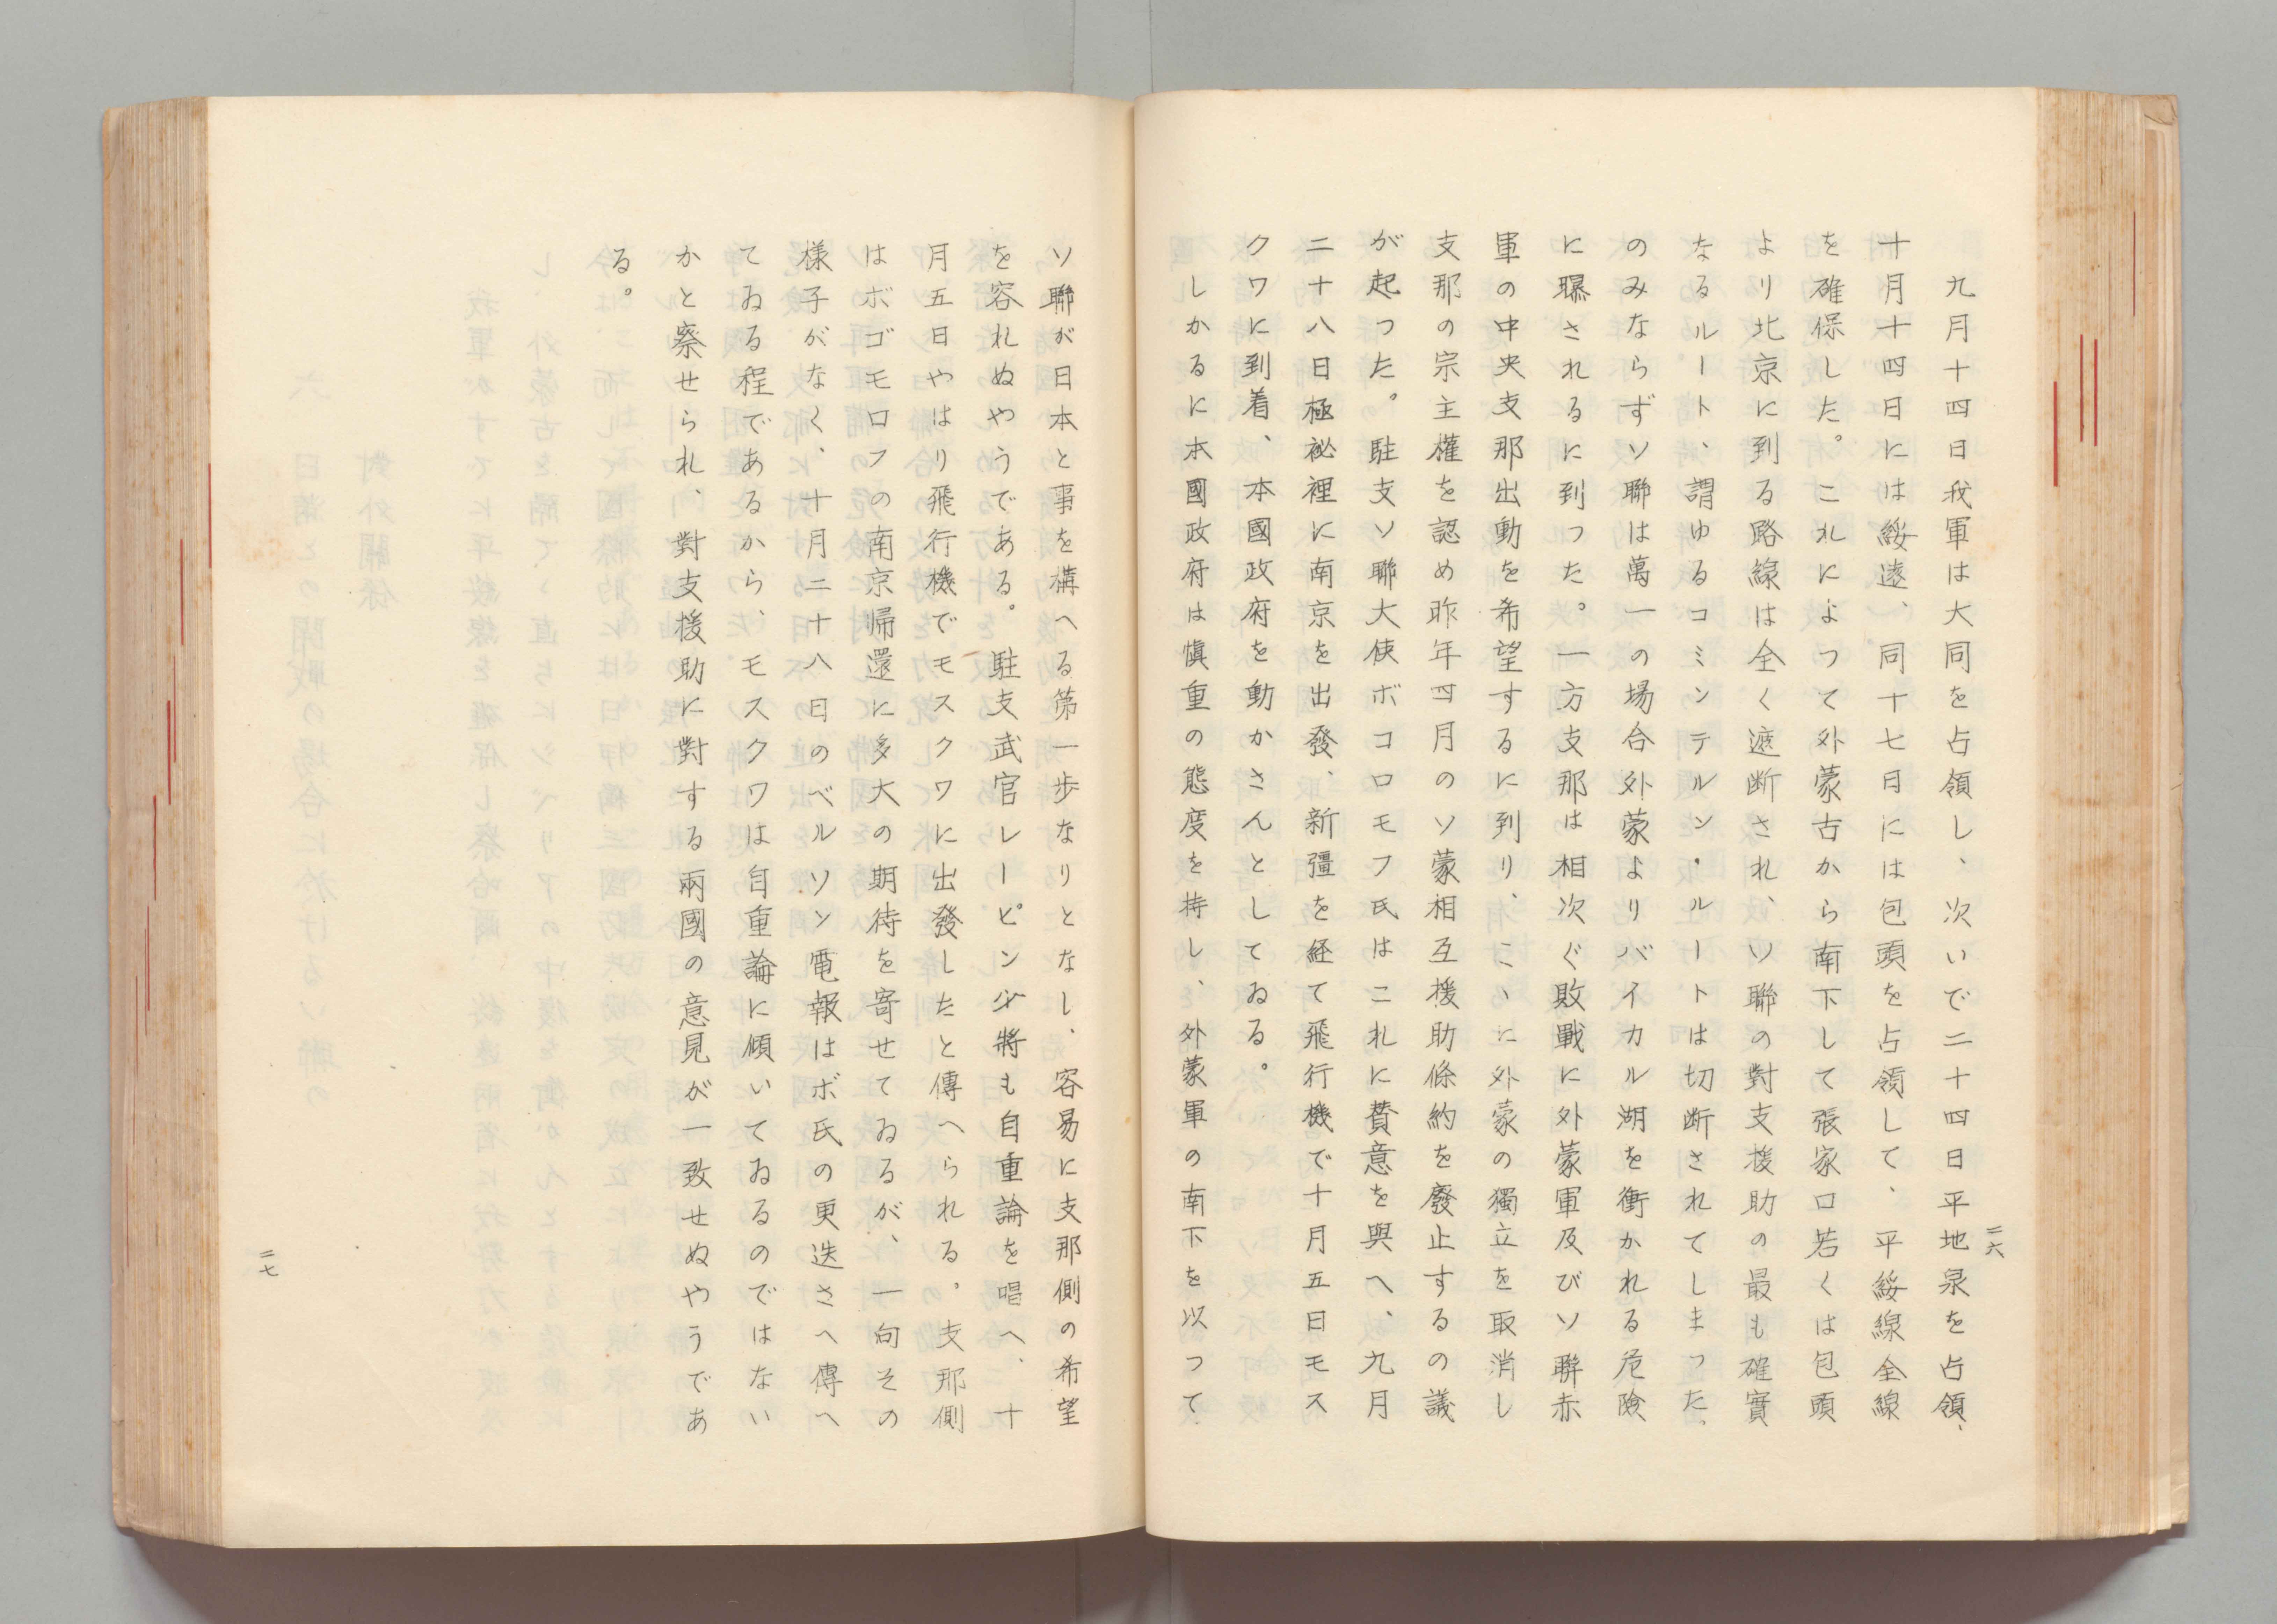 九月十四日我軍は大同を占領し、次いで二十四日平地泉を占領、
十月十四日には綏遠、同十七日には包頭を占領して、平綏線全線
を確保した。これによつて外蒙古から南下して張家口若くは包頭
より北京に到る路線は全く遮断され、ソ聯の對支援助の最も確實
なるルート、謂ゆるコミンテルン・ルートは切断されてしまつた。
のみならずソ聯は萬一の場合外蒙よりバイカル湖を衝かれる危険
に曝されるに到つた。一方支那は相次ぐ敗戰に外蒙軍及びソ聯赤
軍の中央支那出動を希望するに到り、こゝに外蒙の獨立を取消し
支那の宗主權を認め昨年四月のソ蒙相互援助條約を廢止するの議
が起つた。駐支ソ聯大使ボコロモフ氏はこれに賛意を與へ、九月
二十八日極祕裡に南京を出發、新疆を経て飛行機で十月五日モス
クワに到着、本國政府を動かさんとしてゐる。
しかるに本國政府は愼重の態度を持し、外蒙軍の南下を以つて
二六
ソ聯が日本と事を構へる第一歩なりとなし、容易に支那側の希望
を容れぬやうである。駐支武官レーピン少將も自重論を唱へ、十
月五日やはり飛行機でモスクワに出發したと傳へられる。支那側
はボゴモロフの南京帰還に多大の期待を寄せてゐるが、一向その
様子がなく、十月二十八日のベルリン電報はボ氏の更迭さへ傳へ
てゐる程であるから、モスクワは自重論に傾いてゐるのではない
かと察せられ、對支援助に對する兩國の意見が一致せぬやうであ
る。
二七